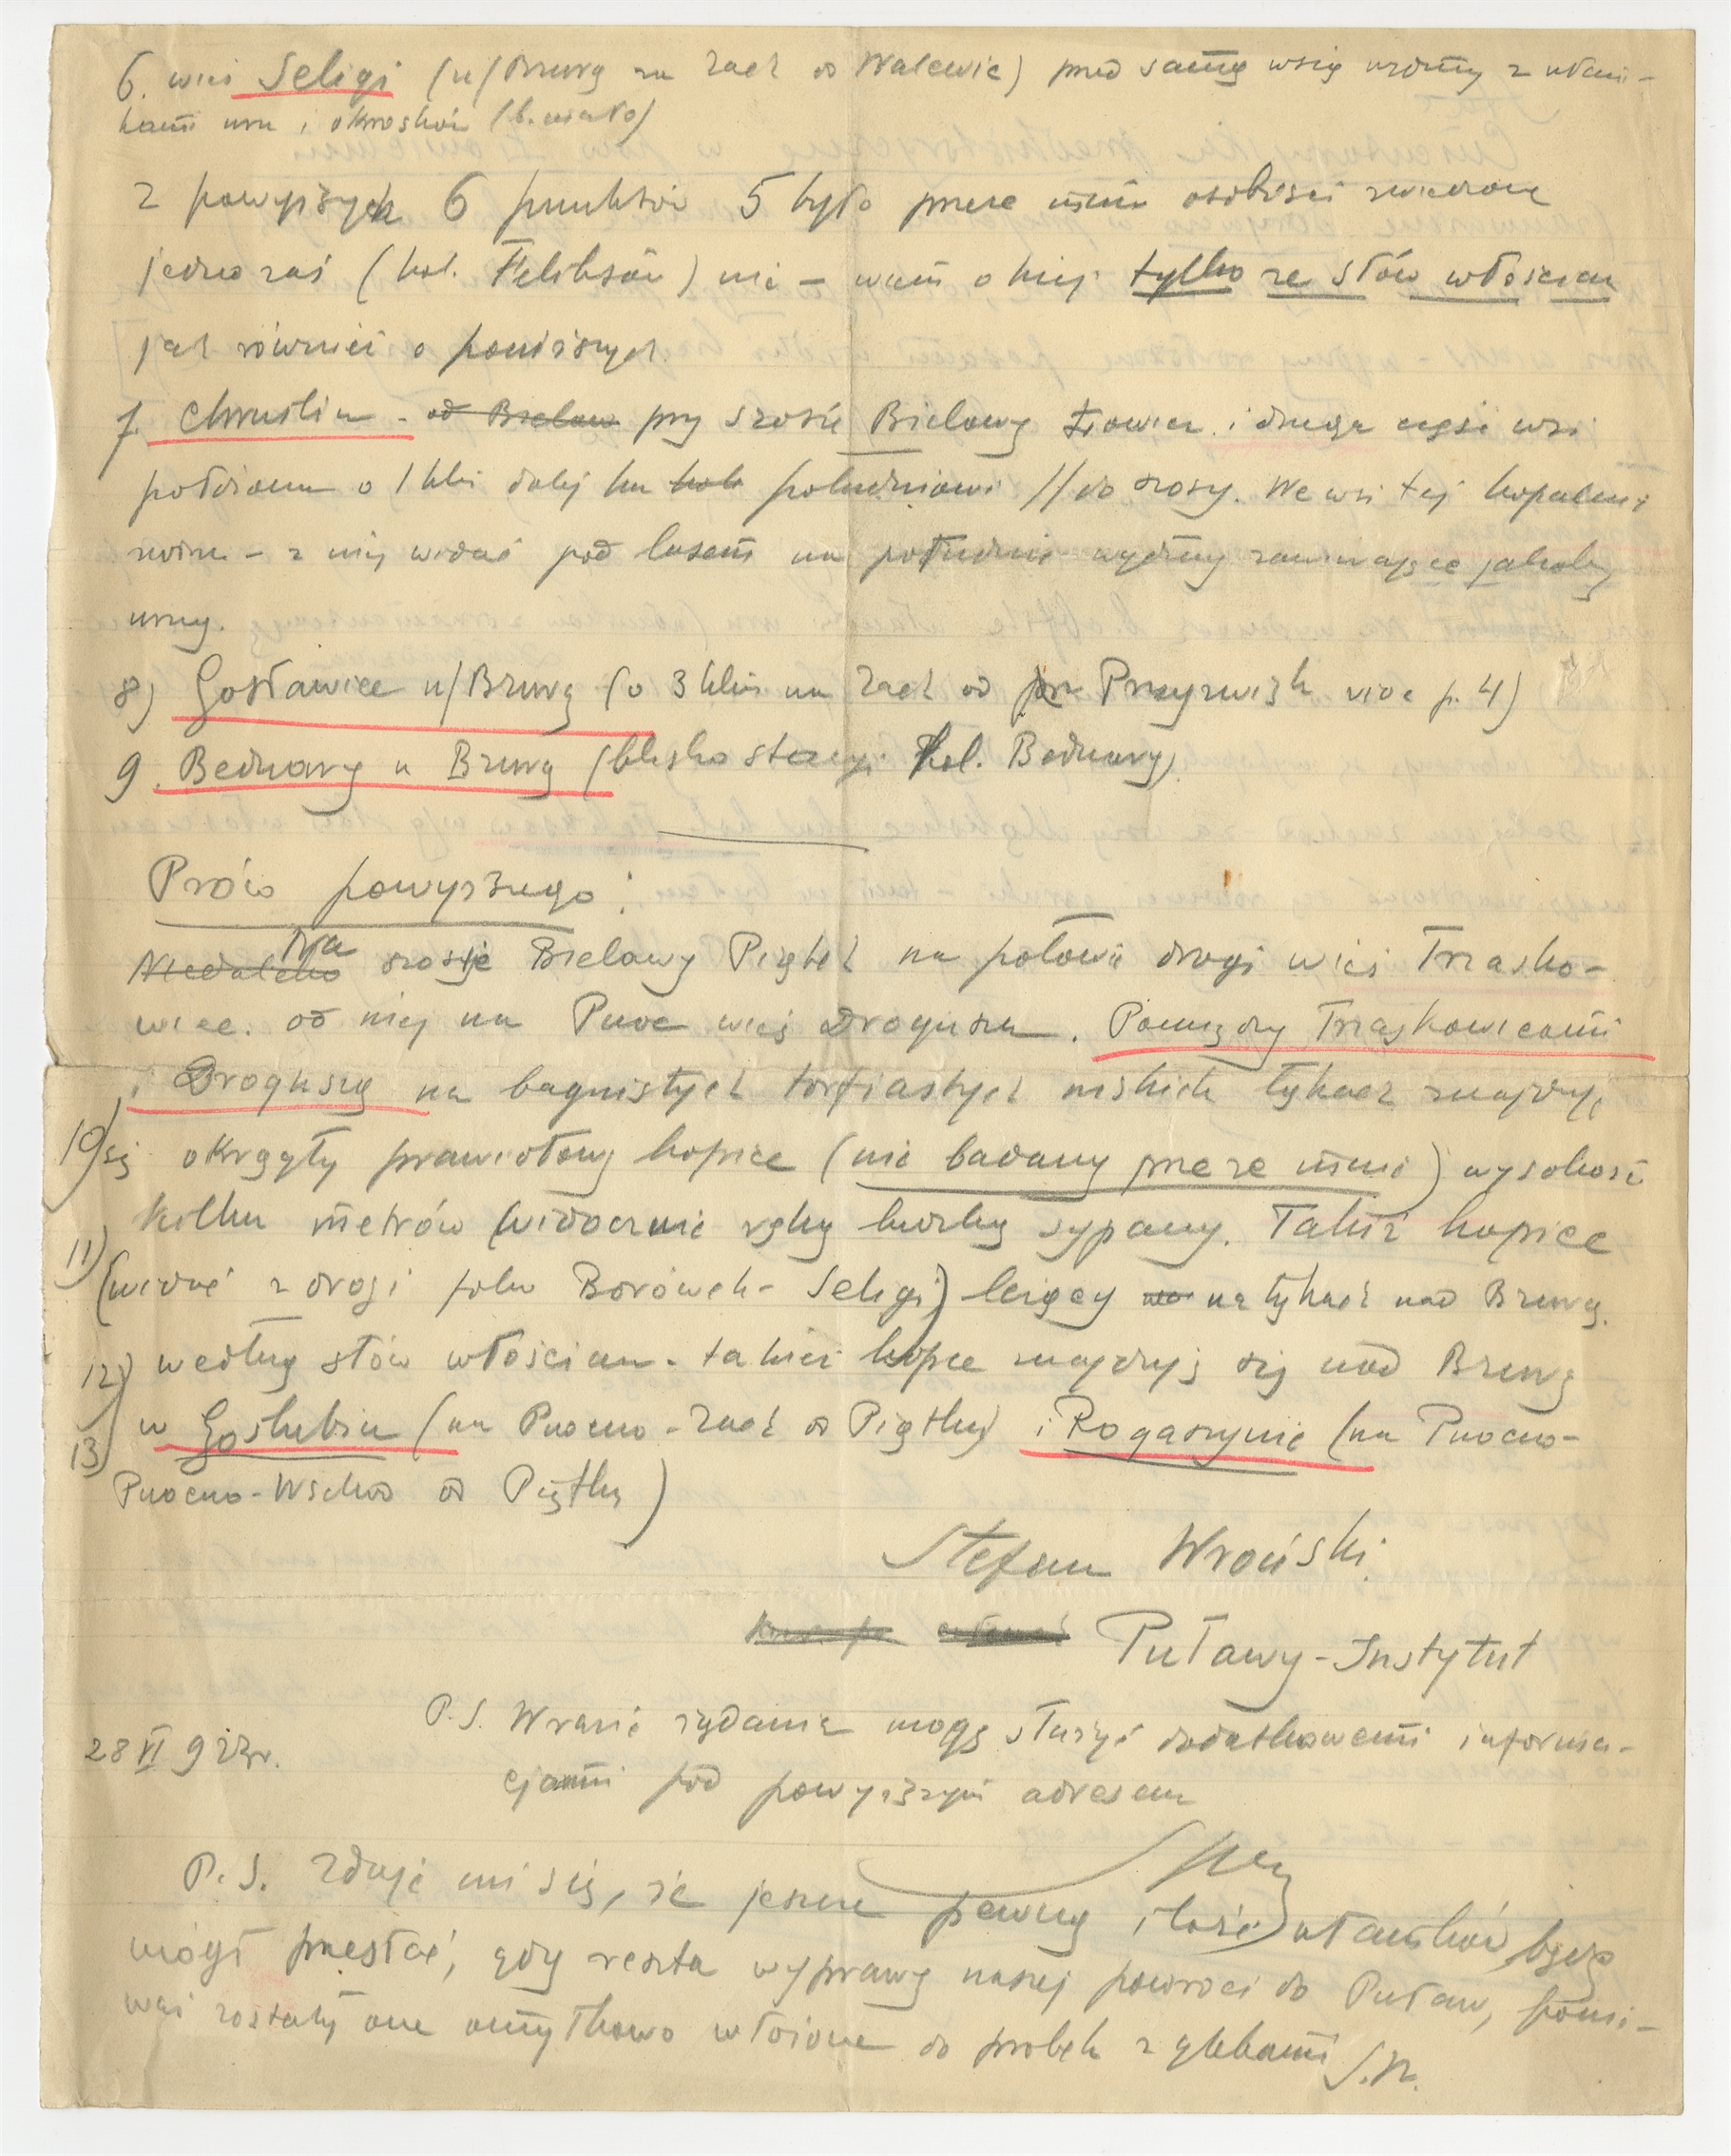 6. wieś Seligi (n/Bzurą na zach od Walewic) pred samą wsią wydmy z ułam-
kami urn i okrosków (b. mało)
Z powyższych 6 punktów 5 było prze ze mnie osobiści zwiedzone
jedno zaś (kol. Feliksów) nie – wiem o niej tylko ze słów włościan
jak również o poniższych.
7. Chruślin - od Bielaw przy szosie Bielawy Łowicz i druga część wsi
położona o 1 klm dalej ku południowi // do szosy. We wsi tej kopalnia
żwiru – z niej widać pod lasem na południe wydmy zawierające jakoby
urny.
8) Gosławice n/Bzurą (o 3 klm na zach od Przezwisk vide p. 4)
9. Bednary n Bzurą (blisko stacyi kol. Bednary).
Prócz powyższego:
Niedaleko Na szosie Bielawy Piątek na połowie drogi wieś Trzasko-
wice. od niej na Północ wieś Drogusza. Pomiędzy Trzaskowicami
i Droguszą na bagnistych torfiastych niskich łąkach znajduje
10) się okrągły prawidłowy kopiec (nie badany prze ze mnie) wysokość
kilku metrów widocznie ręką ludzką sypany. Takiż kopiec
11) (widać z drogi folw Borówek - Seligi) leżący na łąkach nad Bzurą.
12) według słów włościan - takież kopce znajdują się nad Bzurą
13) w Goślubiu (na Półnono - Zach od Piątku) i Rogaszynie (na Półnono-
Półnono - Wschod od Piątku)
Stefan Wroński
Puławy - Instytut
28 VI 922r.
P.S. W razie żądania mogę służyć dodatkowemi informa-
cjami pod powyższym adresem
P.S. Zdaje mi się, że jeszcze pewną ilość ułamków będę
mógł przesłać, gdy reszta wyprawy naszej powróci do Puław, poni-
waż zostały one omyłkowo włożone do próbek z glebami S.W.